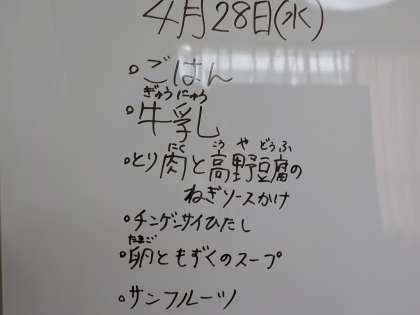 4月28日(水)
○ごはん
ぎゅうにゅう
○牛乳
にく こうやどうふ
○とり肉と高野豆腐の
ねぎソースかけ
○チンゲンサイひたし
たまご
○卵ともずくのスープ
○サンフルーツ